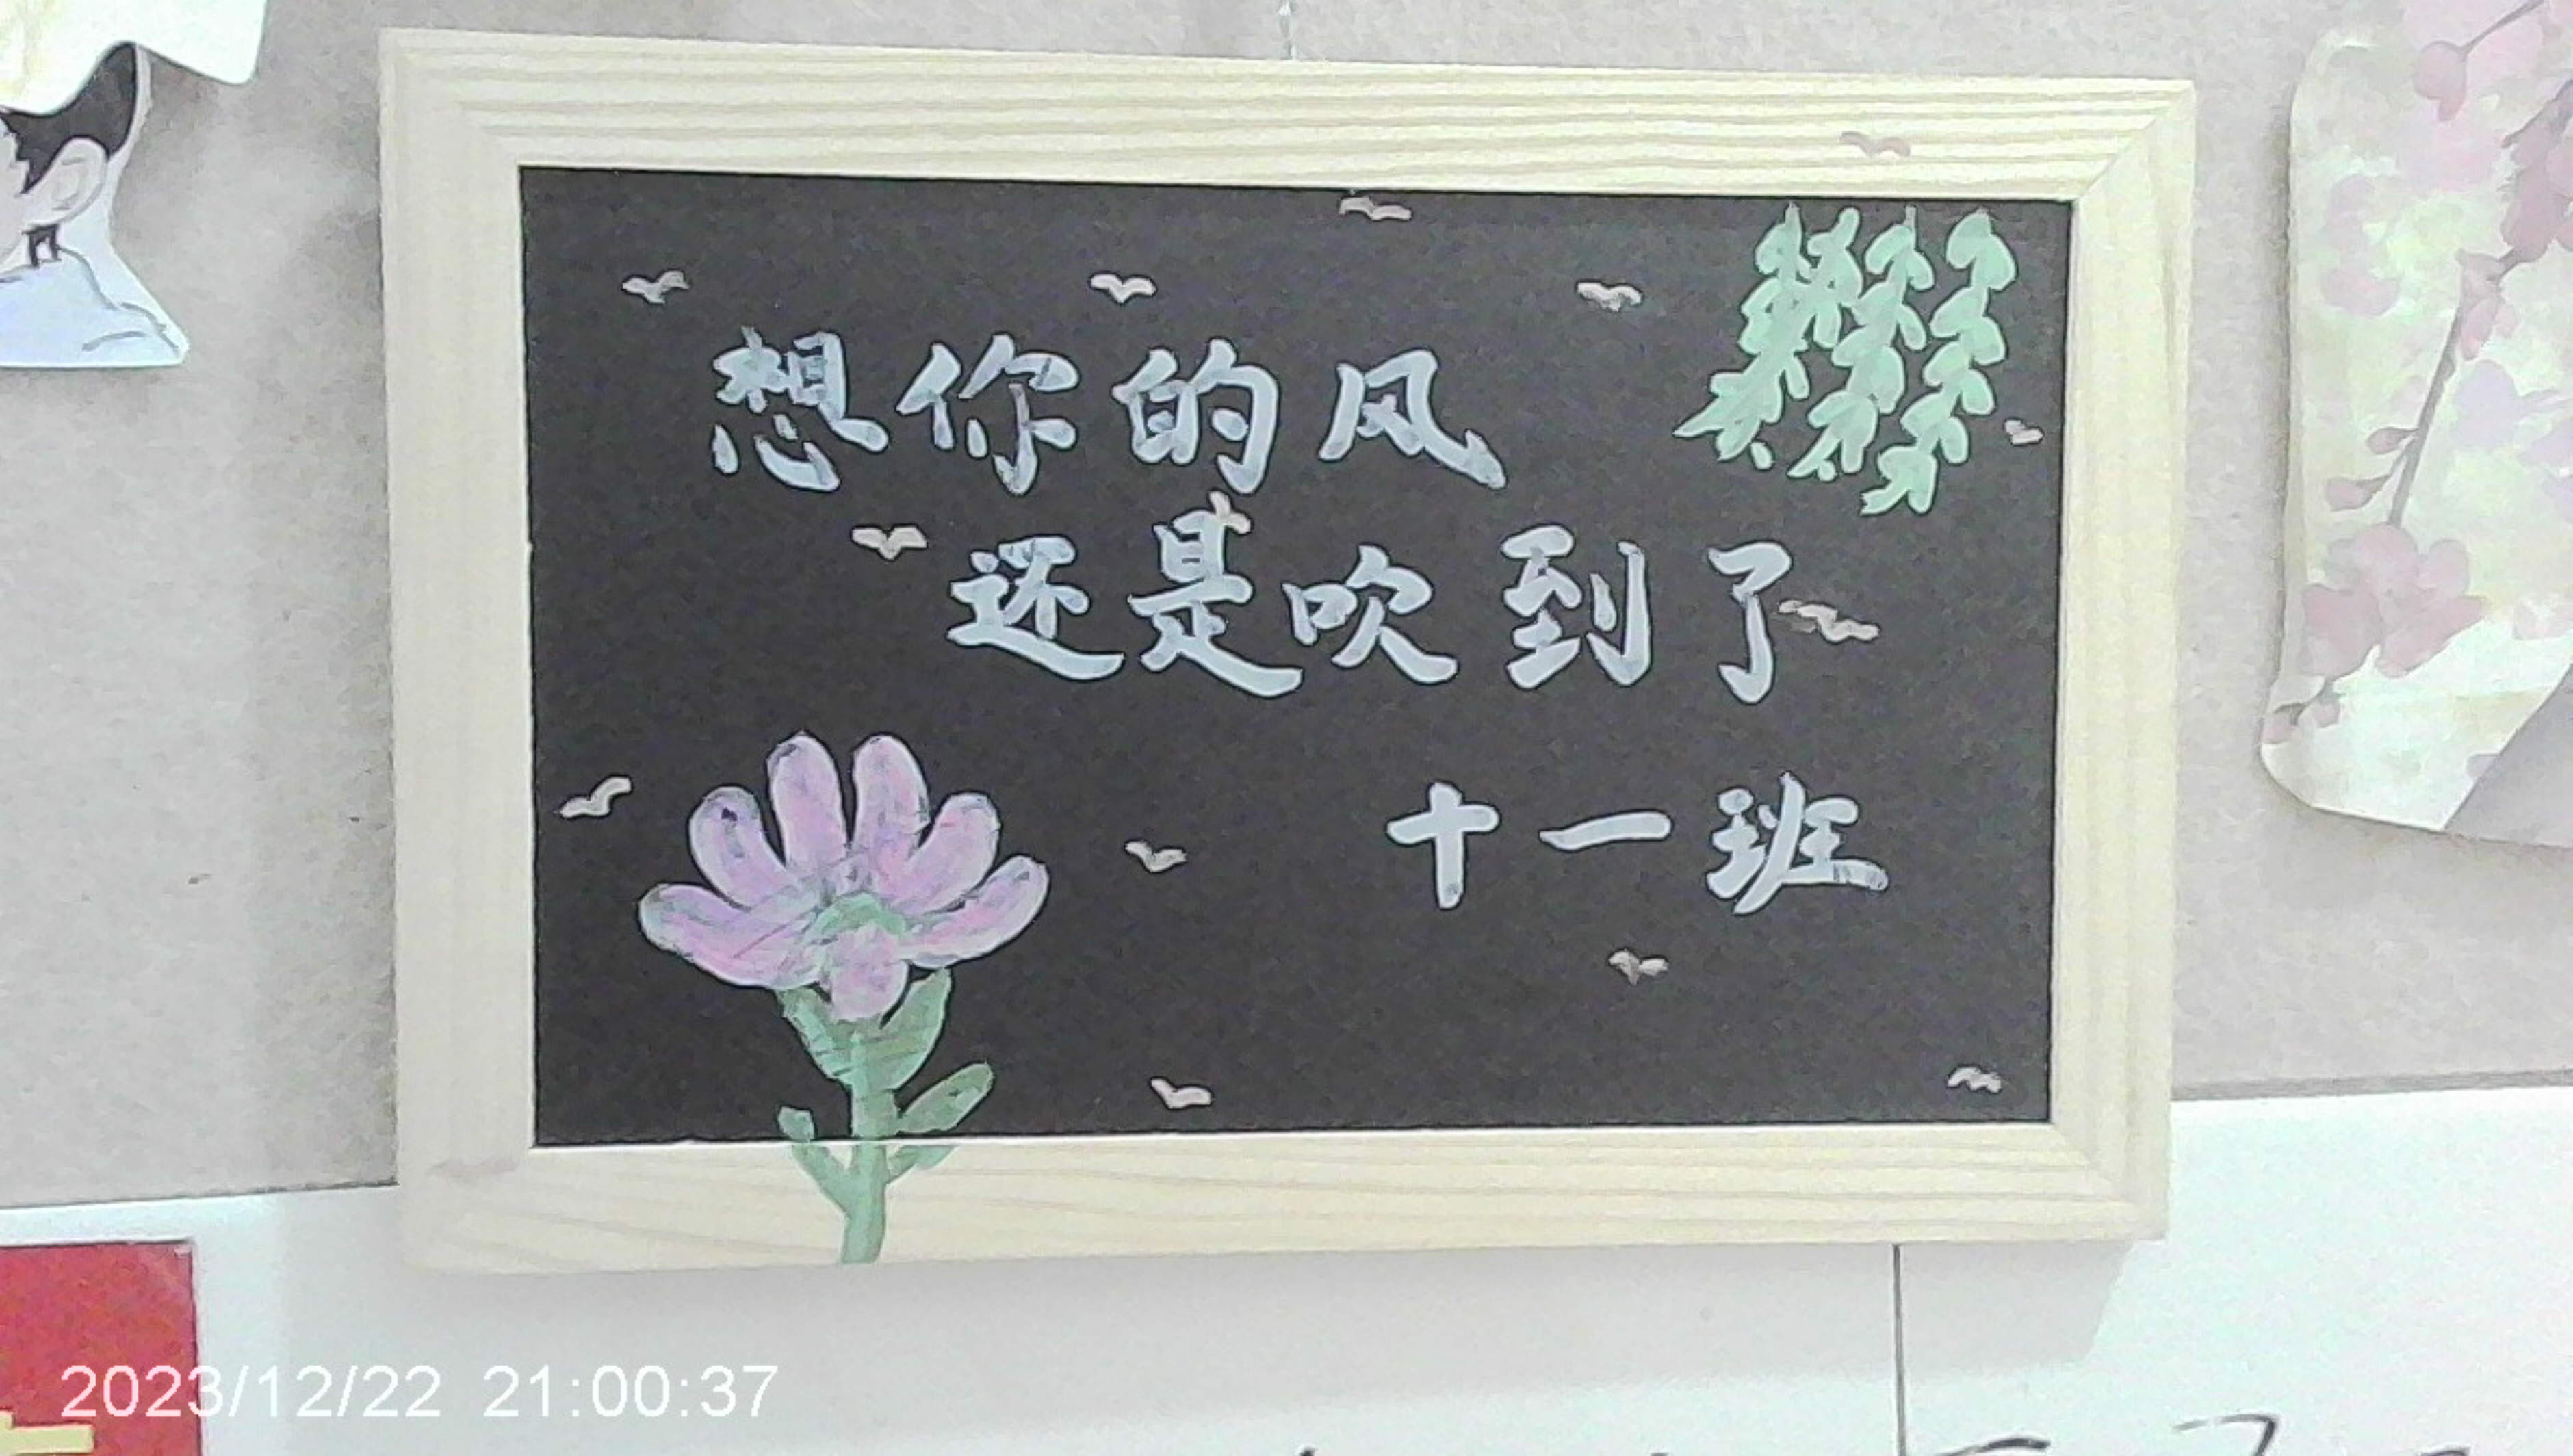 想你的风
还是吹到了
十一班
2023/12/22 21:00:37